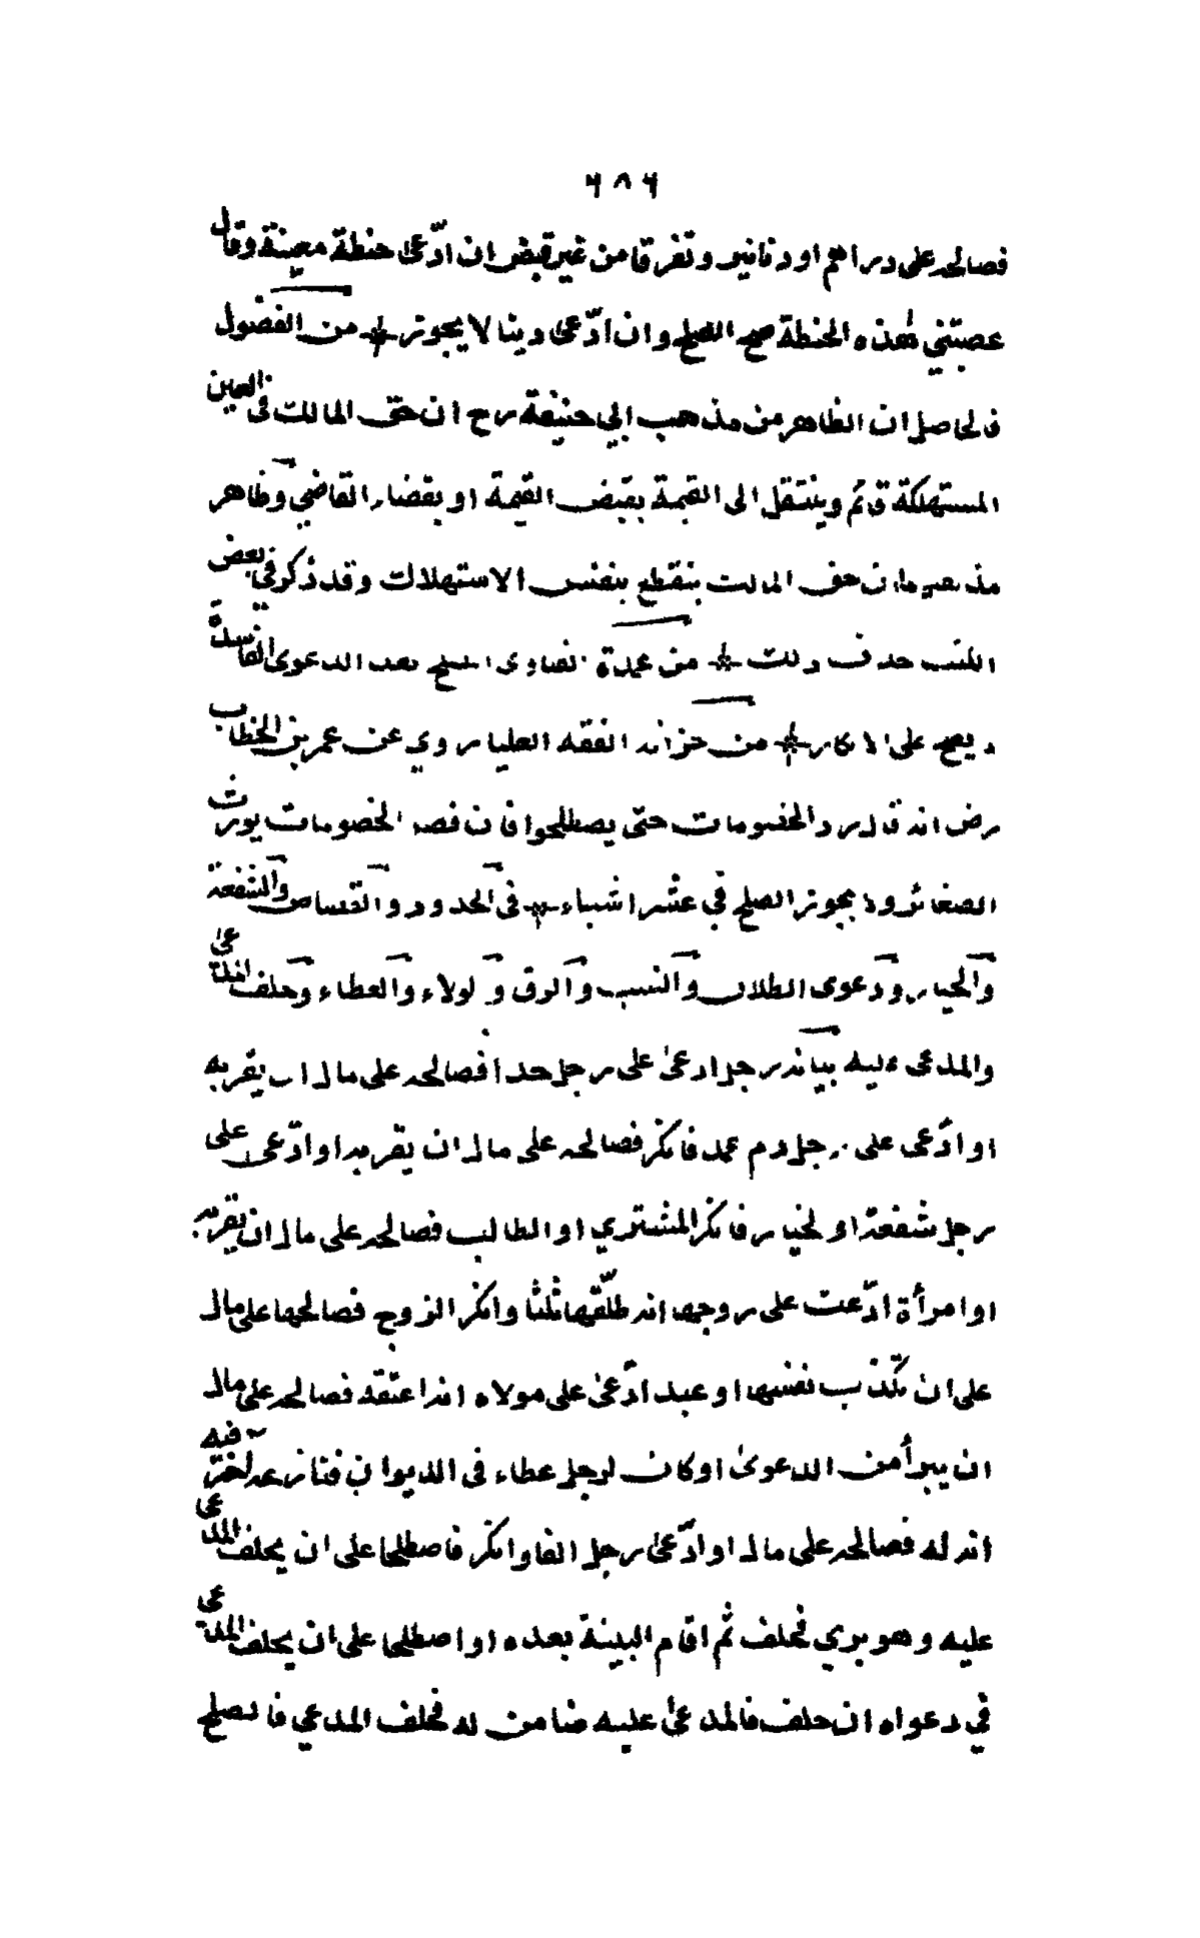 ٦٨٦
فصالحه على دراهم او دنانير وتفرقا من غير قبض ان ادّعى حنطة معينة وقال
غصبتني هذه الحنطة صح الصلح وان ادّعى دينا لا يجوز من الفضول
فالحاصل ان الظاهر من مذهب ابي حنيفة رح ان حق المالك في العين
المستهلكة قائم وينتقل الى القيمة بقبض القيمة او بقضاء القاضي وظاهر
مذهبهما ان حق المالك ينقطع بنفس الاستهلاك وقد ذكر في بعض
الكتب خلاف ذلك من عمدة الفتاوى الصلح بعد الدعوى الفاسدة
يصح على الانكار من خزانة الفقه العليا روي عن عمر بن الخطاب
رض انه قال ردوا الخصومات حتى يصطلحوا فان فصل الخصومات يورث
الضغائن ولا يجوز الصلح في عشر اشياء في الحدود والقصاص والشفعة
والخيار ودعوى الطلاق والنسب والرق والولاء والعطاء وحلف المدعى
والمدعى عليه بيانه رجل ادعى على رجل حدا فصالحه على مال ان يقر به
او ادّعى على رجل دم عمد فانكر فصالحه على مال ان يقر به او ادّعى على
رجل شفعة او الخيار فانكر المشتري او الطالب فصالحه على مال ان يقر به
او امرأة ادّعت على زوجها انه طلّقها ثلثا وانكر الزوج فصالحها على مال
على ان تكذب نفسها او عبد ادّعى على مولاه انه اعتقه فصالحه على مال
ان يبرأ من الدعوى او كان لرجل عطاء في الديوان فنازعه آخر فيه
انه له فصالحه على مال او ادّعى رجل الفا وانكر فاصطلحا على ان يحلف المدعى
عليه وهو بري فحلف ثم اقام البينة بعده او اصطلحا على ان يحلف المدعى
في دعواه ان حلف فالمدعى عليه ضامن له فحلف المدعي فالصلح